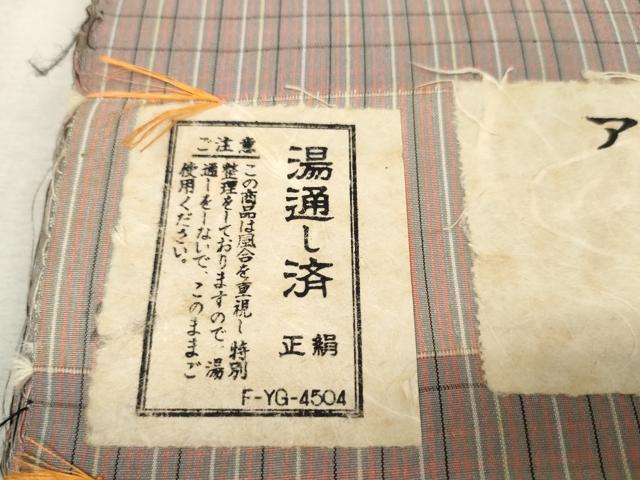 湯通し済
正絹
ご注意
この商品は風合を重視し特別
整理をしておりますので、湯
通しをしないで、このままご
使用ください。
F-YG-4504
ア